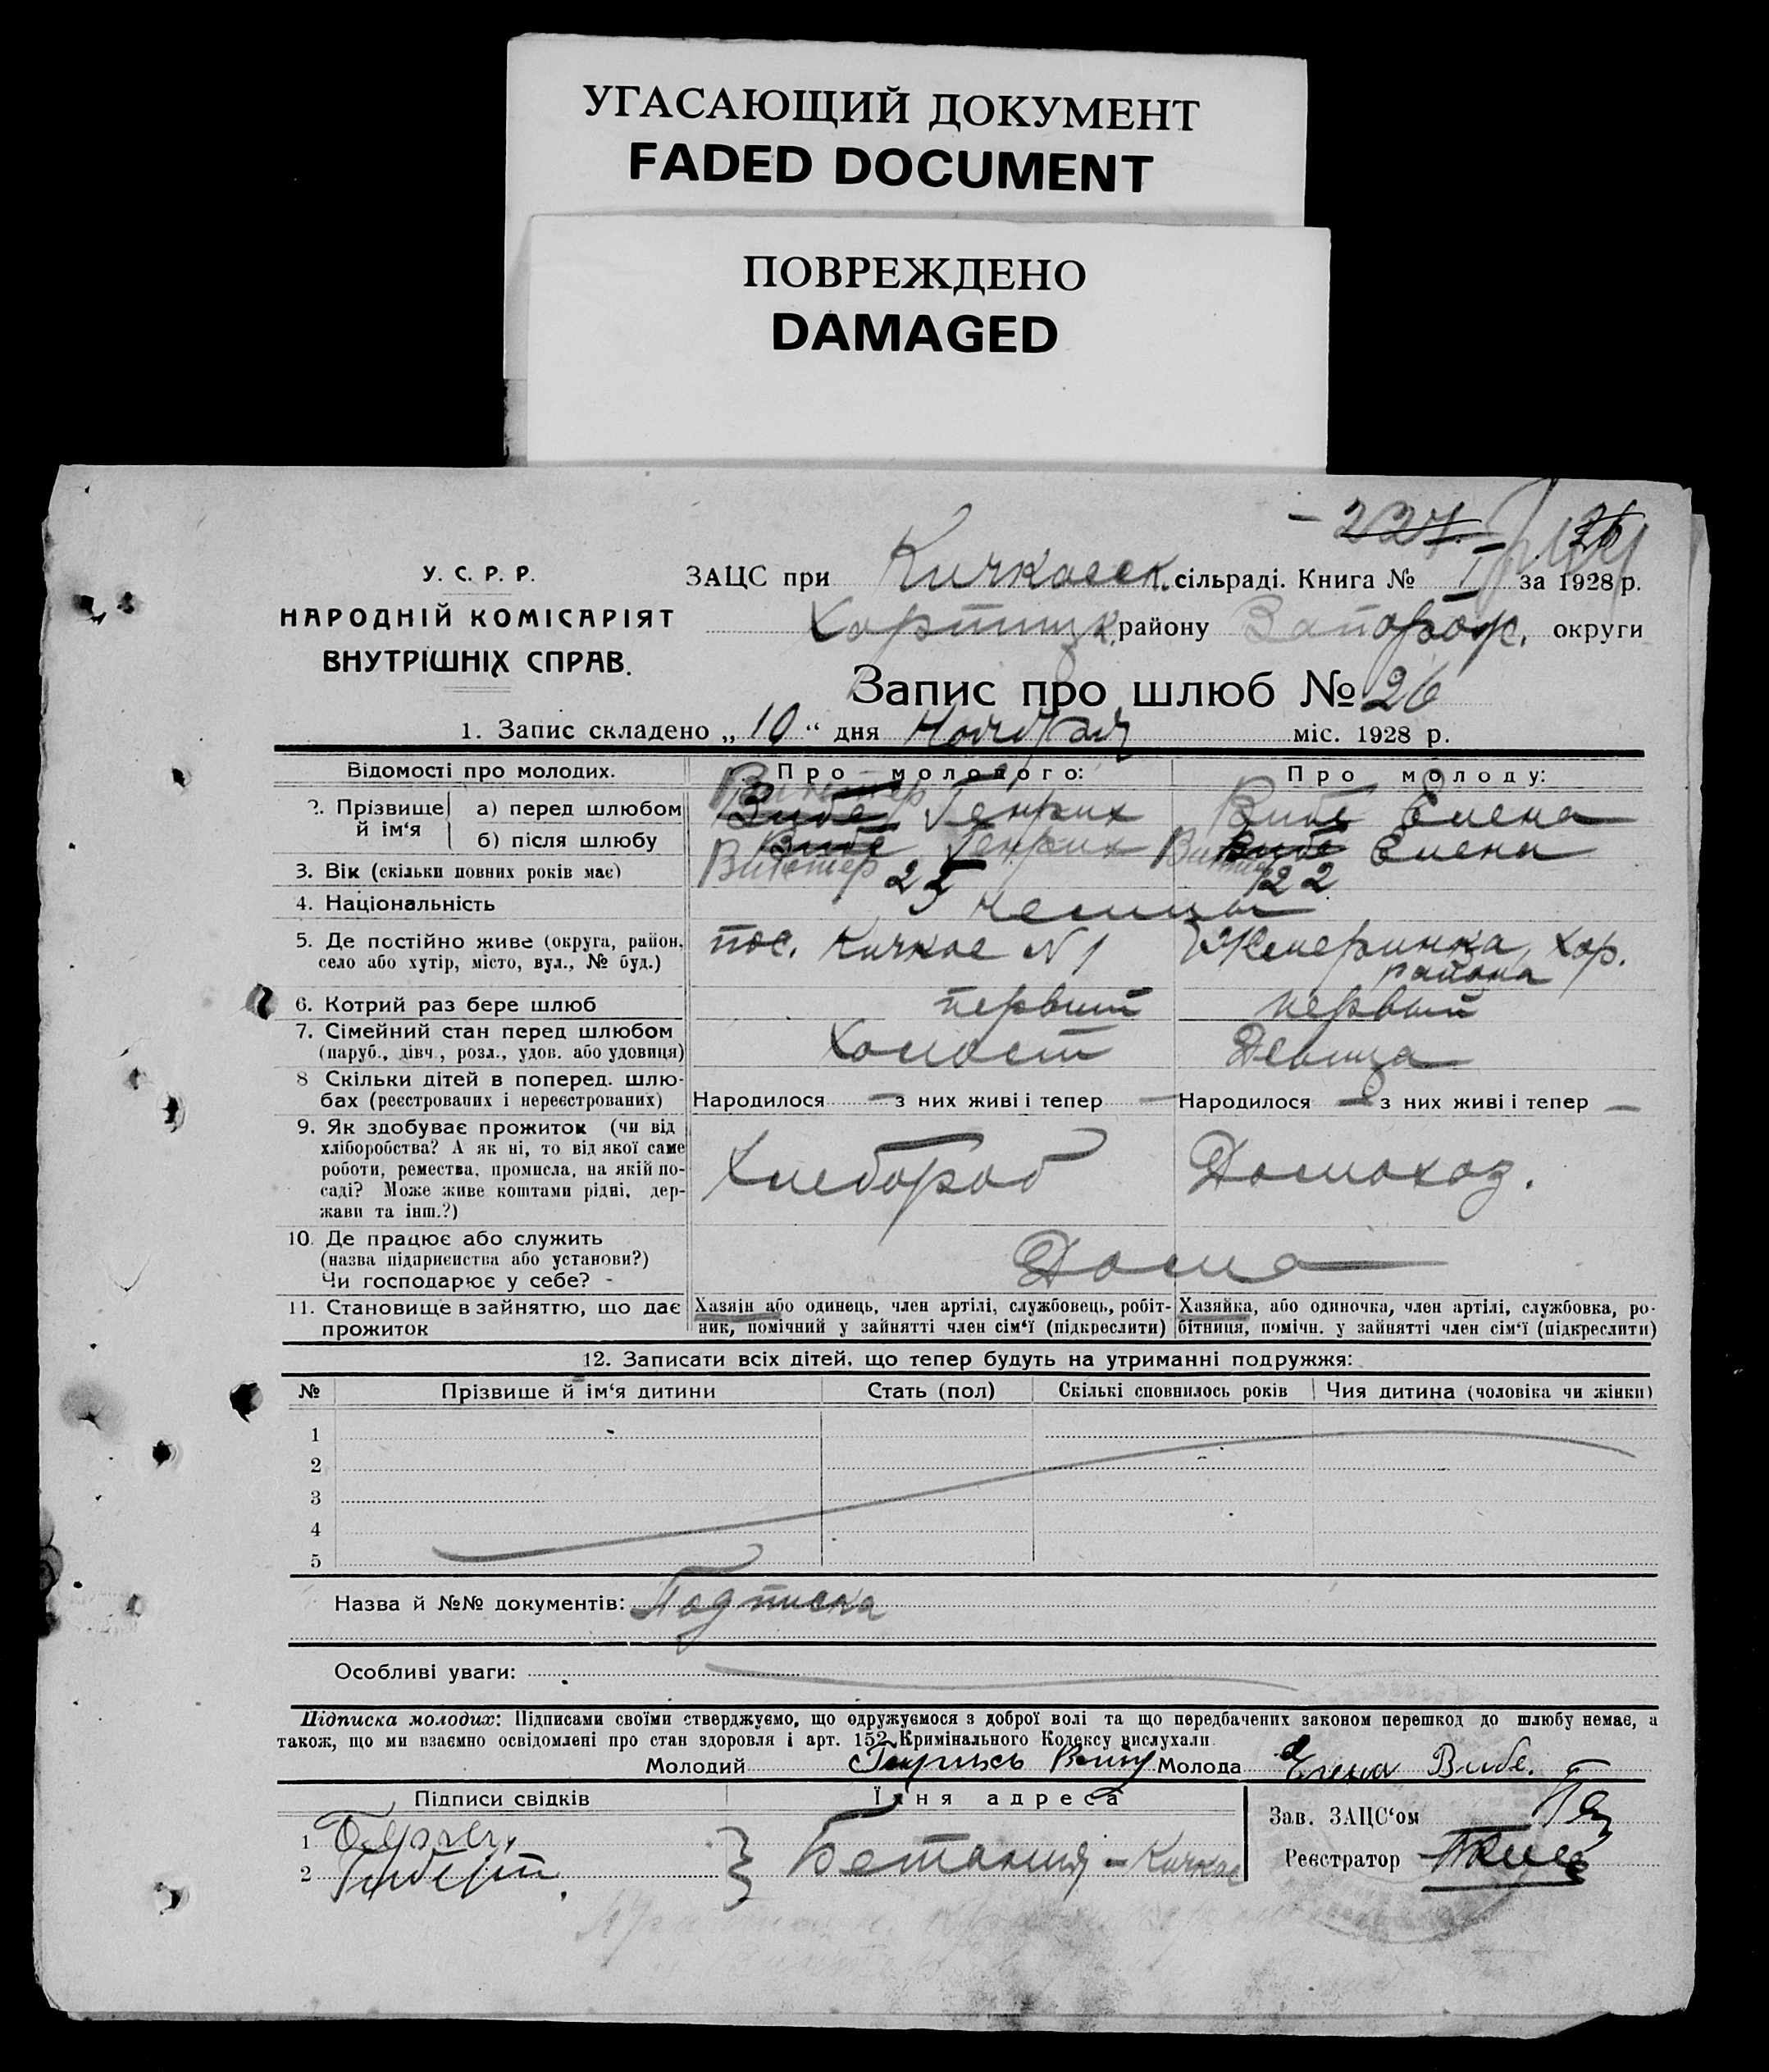 УГАСАЮЩИЙ ДОКУМЕНТ
FADED DOCUMENT
ПОВРЕЖДЕНО
DAMAGED
227. 26
У. С. Р. Р.
НАРОДНІЙ КОМІСАРІЯТ
ВНУТРІШНІХ СПРАВ.
ЗАЦС при Кичкасск. сільраді. Книга № I за 1928 р.
Хортицк. району Запорож. округи
Запис про шлюб № 26
1. Запис складено „ 10 “ дня Ноября міс. 1928 р.
Відомості про молодих. Про молодого: Про молоду:
2. Прізвище й ім‘я а) перед шлюбом Вибе Генрих Вибе Елена
б) після шлюбу Вибе Генрих Вибе Елена
3. Вік (скільки повних років має) 25 22
4. Національність немцы
5. Де постійно живе (округа, район, село або хутір, місто, вул., № буд.) пос. Кичкас N 1 Жемеринка, Хор. района
6. Котрий раз бере шлюб первый первый
7. Сімейний стан перед шлюбом (паруб., дівч., розл., удов. або удовиця) Холост Девица
8 Скільки дітей в поперед. шлюбах (реєстрованих і нереєстрованих) Народилося — з них живі і тепер — Народилося — з них живі і тепер —
9. Як здобуває прожиток (чи від хліборобства? А як ні, то від якої саме роботи, ремества, промисла, на якій посаді? Може живе коштами рідні, держави та інш.?) Хлебороб Домохоз.
10. Де працює або служить (назва підприєнства або установи?) Чи господарює у себе? - Дома
11. Становище в зайняттю, що дає прожиток Хазяін або одинець, член артілі, службовець, робітник, помічний у зайнятті член сім‘ї (підкреслити) Хазяйка, або одиночка, член артілі, службовка, робітниця, помічн. у зайнятті член сім‘ї (підкреслити)
12. Записати всіх дітей, що тепер будуть на утриманні подружжя:
№ Прізвише й ім‘я дитини Стать (пол) Скількі сповнилось років Чия дитина (чоловіка чи жінки)
1
2
3
4
5
Назва й №№ документів: Подписка
Особливі уваги:
Підписка молодих: Підписами своїми стверджуємо, що одружуємося з доброї волі та що передбачених законом перешкод до шлюбу немає, а
також, що ми взаємно освідомлені про стан здоровля і арт. 152 Кримінального Кодексу вислухали.
Молодий Молода Елена Вибе.
Підписи свідків Їхня адреса
1 Зав. ЗАЦС‘ом
2 Бетания - Кичкас Реєстратор